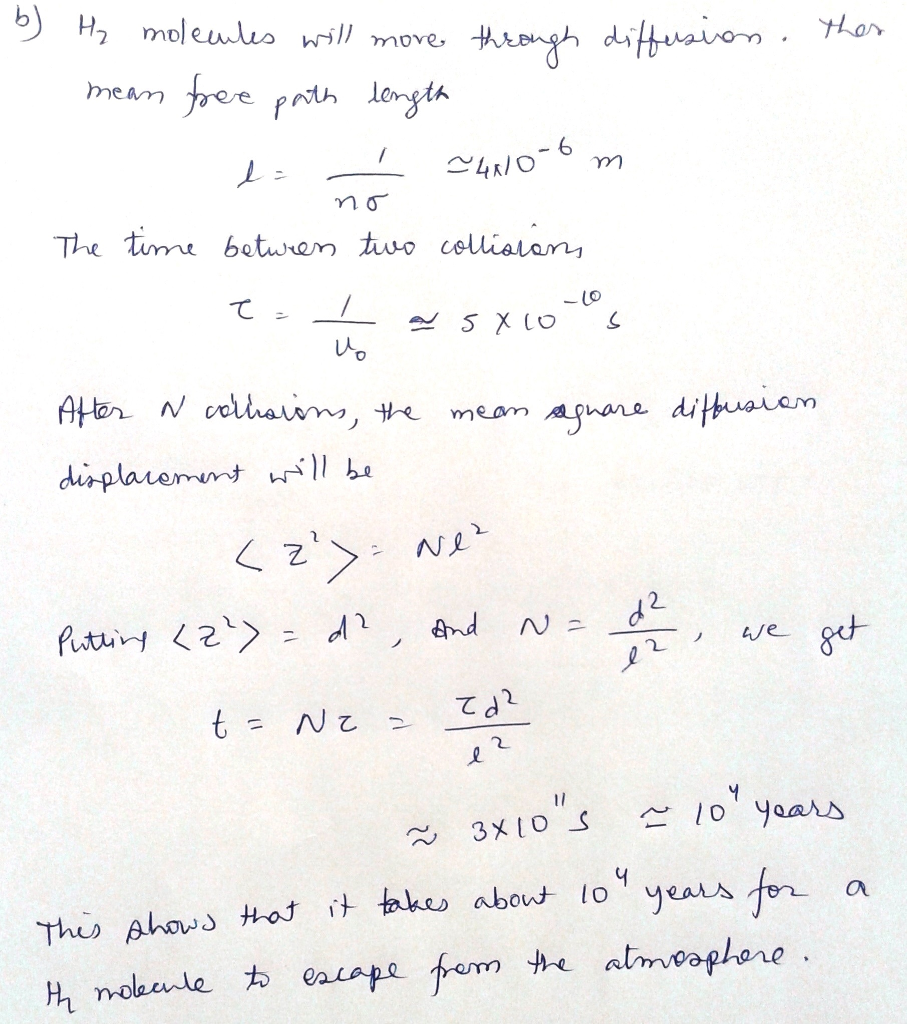 b) H₂ molecules will move through diffusion. Their
mean free path length
l = 1/nσ ≃ 4x10⁻⁶ m
The time between two collisions
τ = l/u₀ ≃ 5 x 10⁻¹⁰ s
After N collisions, the mean square diffusion
displacement will be
< z² > = Nl²
Putting <z²> = d², And N = d²/l², we get
t = Nτ = τd²/l²
≈ 3x10¹¹ s ≃ 10⁴ years
This shows that it takes about 10⁴ years for a
H₂ molecule to escape from the atmosphere.